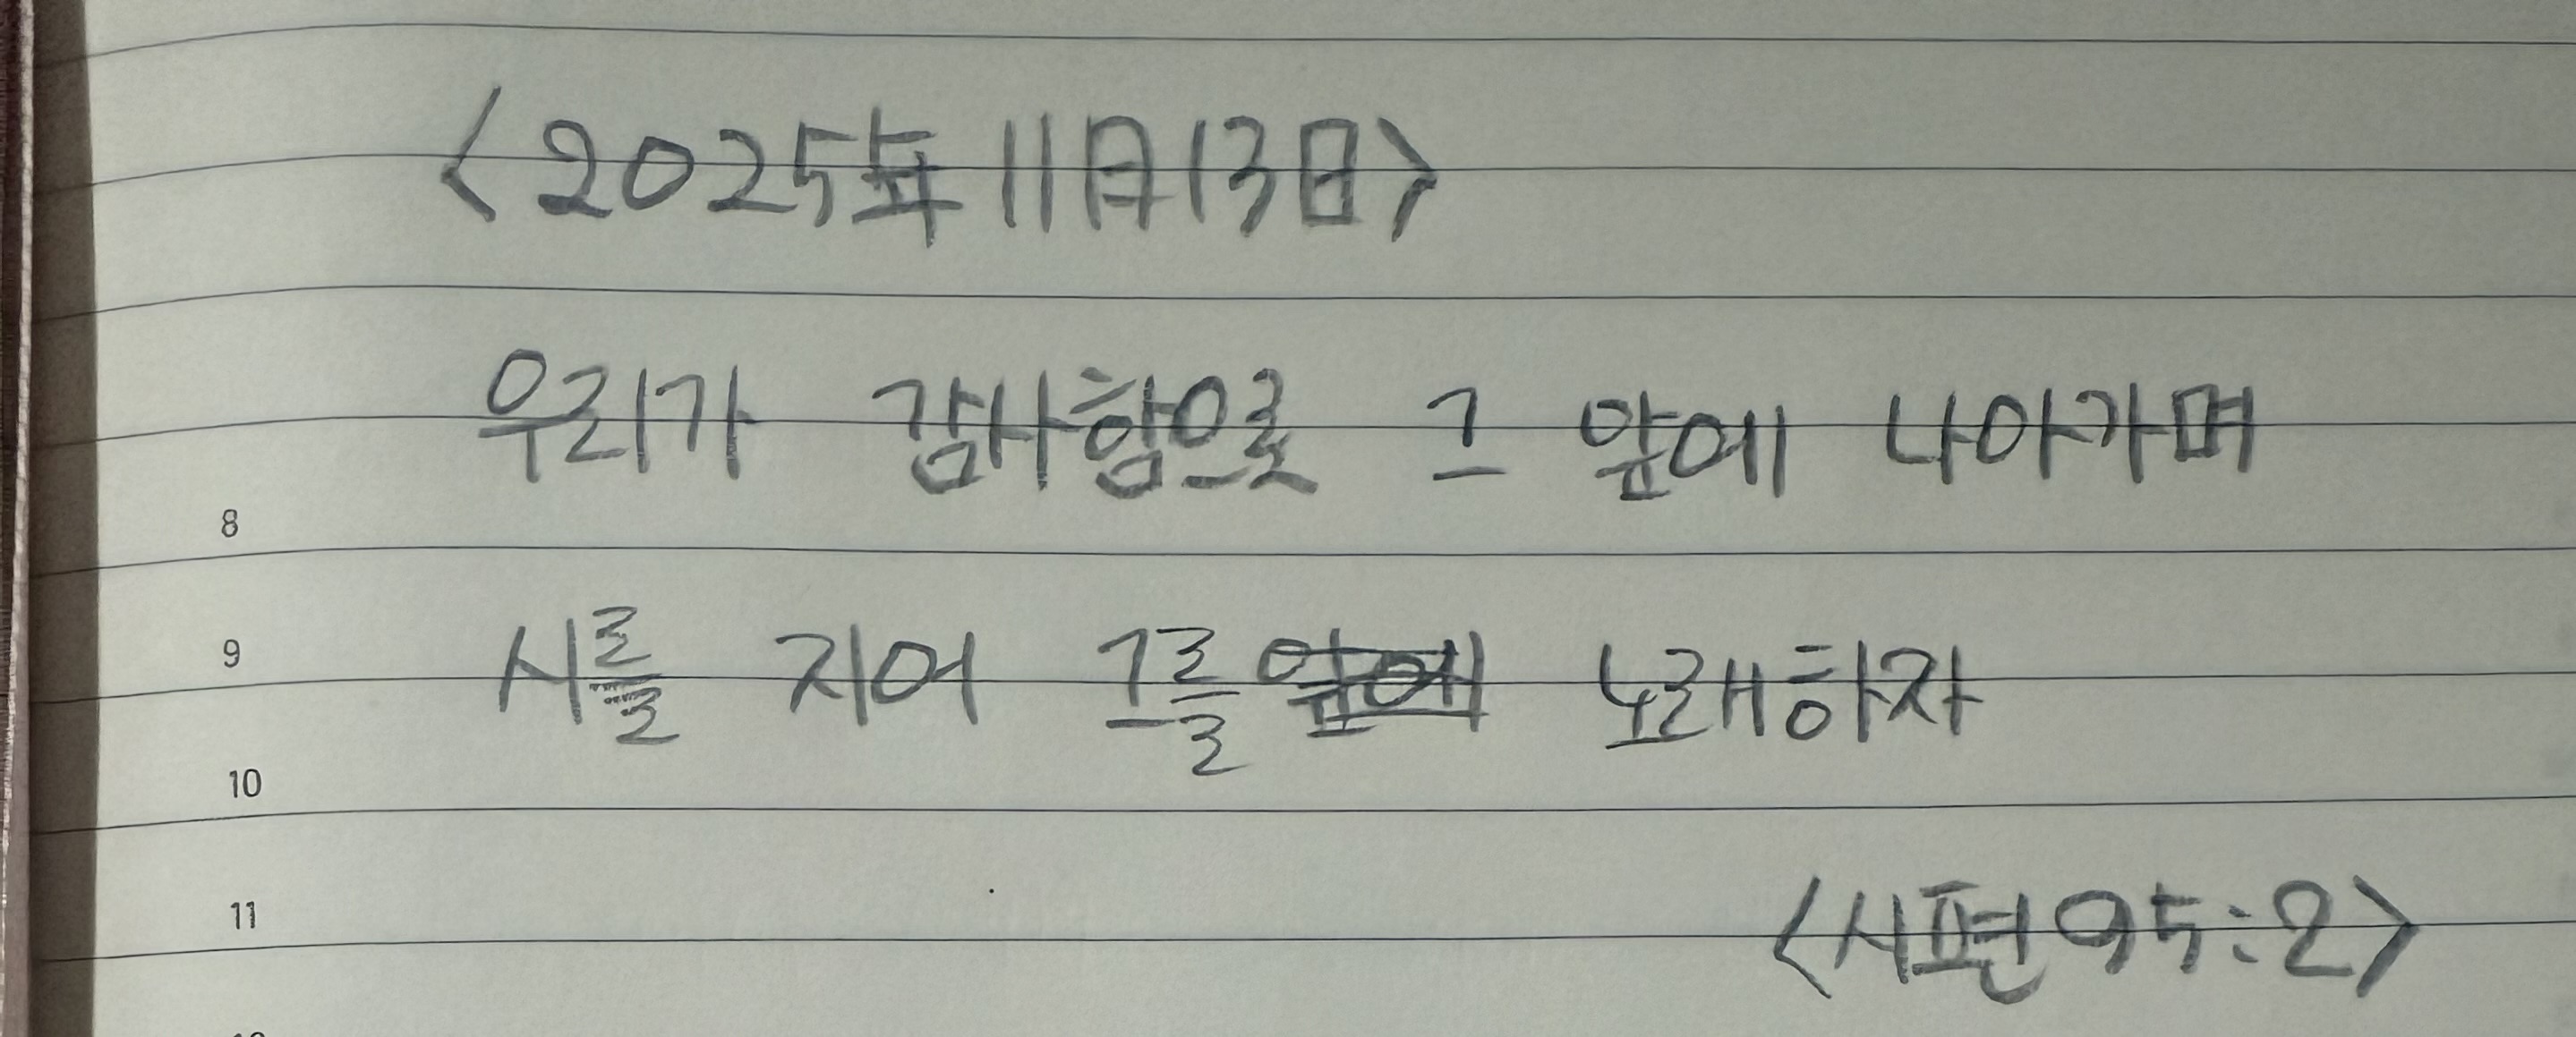 <2025年11月13日>
우리가 감사함으로 그 앞에 나아가며
8
시를 지어 그를 앞에 노래하자
9
10
11
<시편95:2>